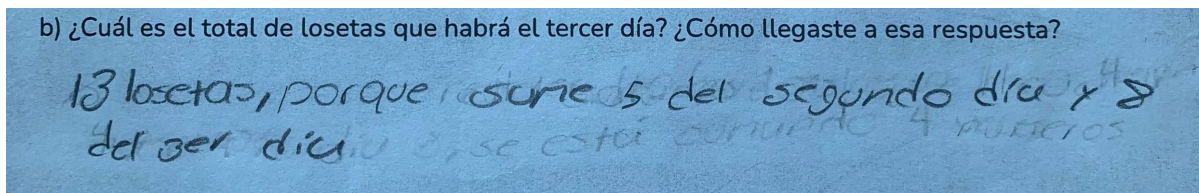 b) ¿Cuál es el total de losetas que habrá el tercer día? ¿Cómo llegaste a esa respuesta?
13 losetas, porque sume 5 del segundo día y 8
del 3er día